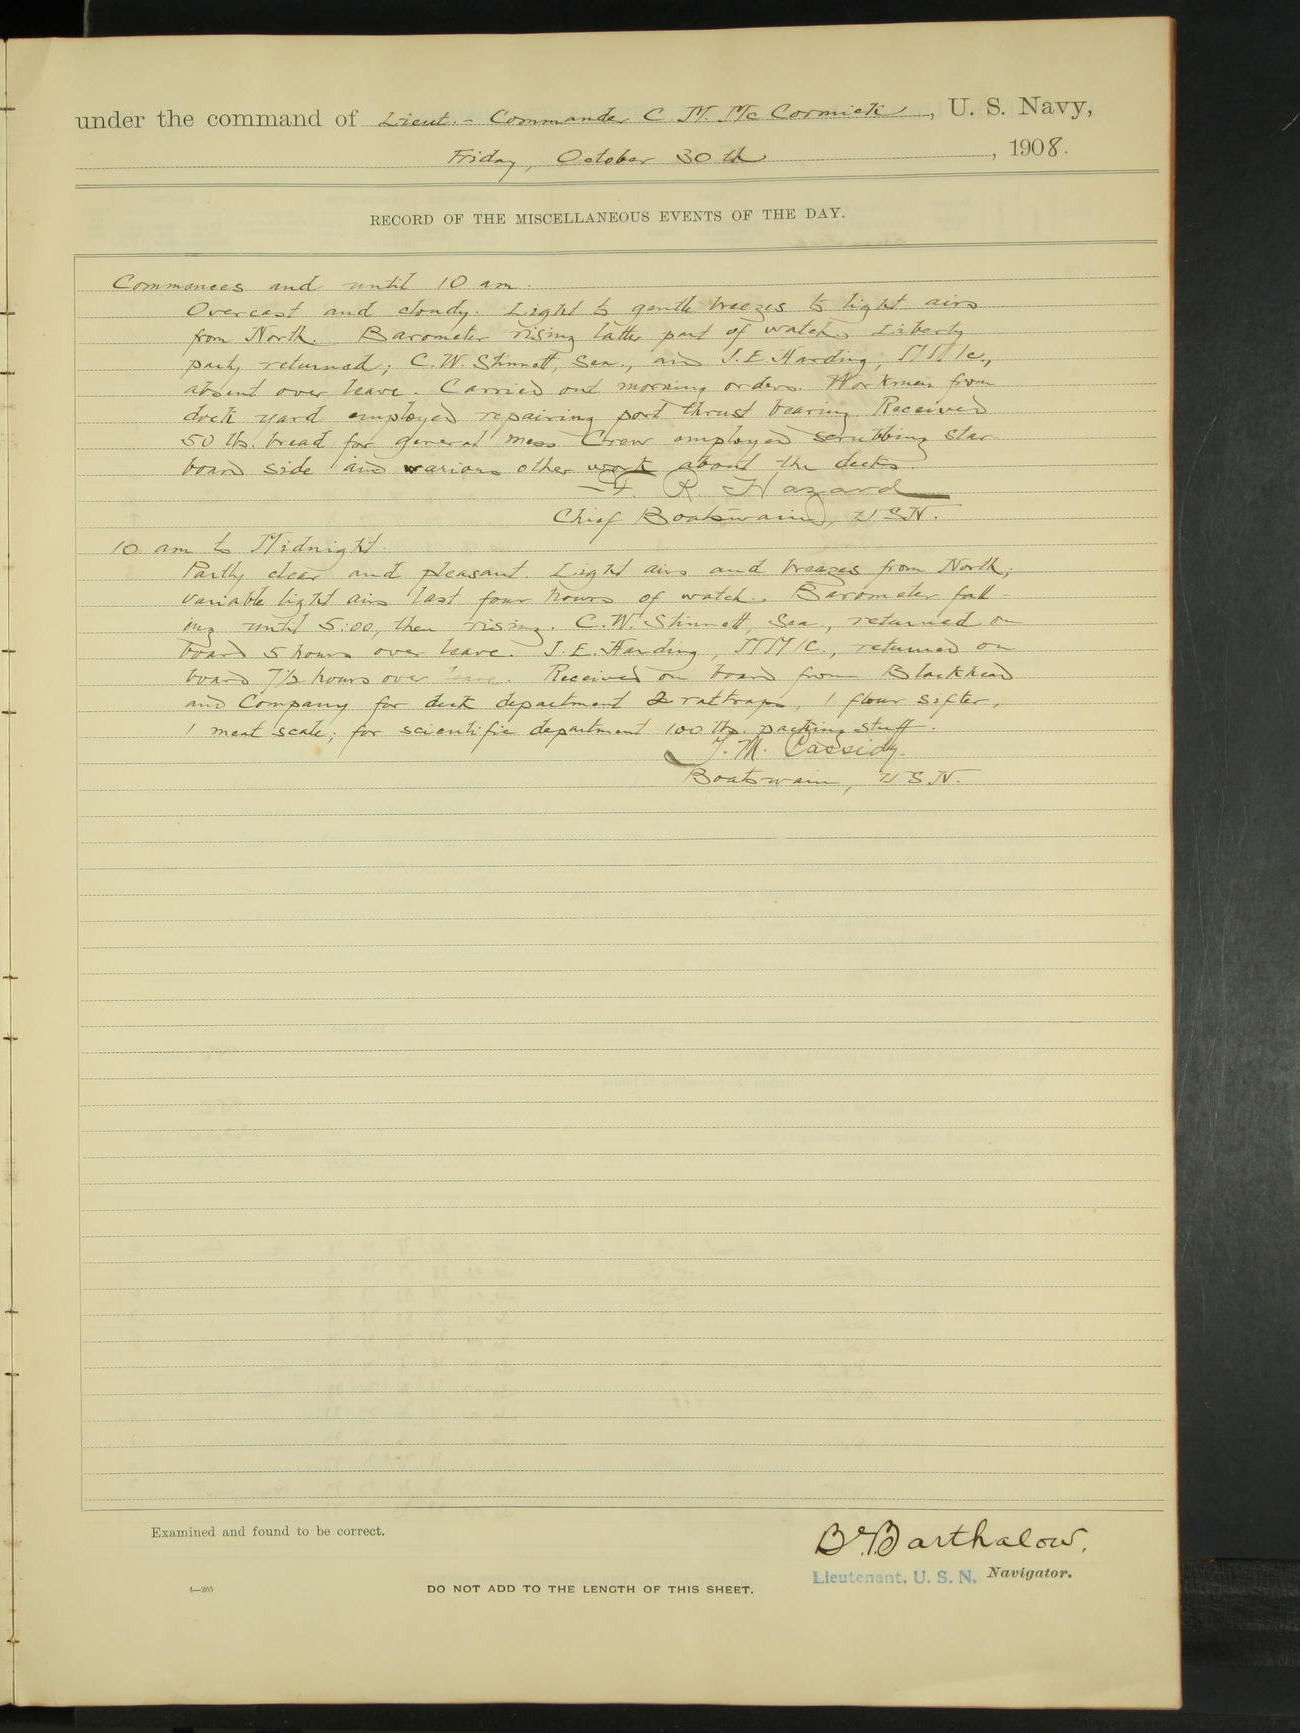 under the command of Lieut.-Commander C. M. McCormick, U. S. Navy,
Friday, October 30th, 1908.
RECORD OF THE MISCELLANEOUS EVENTS OF THE DAY.
Commences and until 10 am.
Overcast and cloudy. Light to gentle breezes to light airs
from North. Barometer rising latter part of watch. Liberty
party returned; C. W. Stinnett, Sea., and J. E. Harding, MM1c,
absent over leave. Carried out morning orders. Workmen from
dock yard employed repairing port thrust bearing. Received
50 lbs. bread for general mess. Crew employed scrubbing star-
board side and various other work about the decks.
F. R. Hazard
Chief Boatswain, USN.
10 am to Midnight.
Partly clear and pleasant. Light airs and breezes from North;
variable light airs last four hours of watch. Barometer fall-
ing until 5:00, then rising. C. W. Stinnett, Sea., returned on
board 5 hours over leave. J. E. Harding, MM1C., returned on
board 7½ hours over leave. Received on board from Blackhead
and Company for deck department 2 rattraps, 1 flour sifter,
1 meat scale; for scientific department 100 lbs. packing stuff.
J. M. Cassidy.
Boatswain, USN.
Examined and found to be correct.
Barthalow.
Lieutenant, U. S. N. Navigator.
4—265
DO NOT ADD TO THE LENGTH OF THIS SHEET.